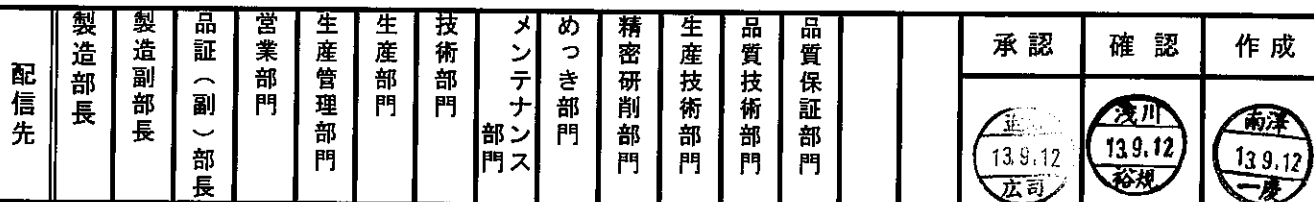 配信先
製造部長
製造副部長
品証(副)部長
営業部門
生産管理部門
生産部門
技術部門
メンテナンス
部門
めっき部門
精密研削部門
生産技術部門
品質技術部門
品質保証部門
承認
確認
作成
13.9.12
広司
浅川
13.9.12
裕規
南澤
13.9.12
一慶